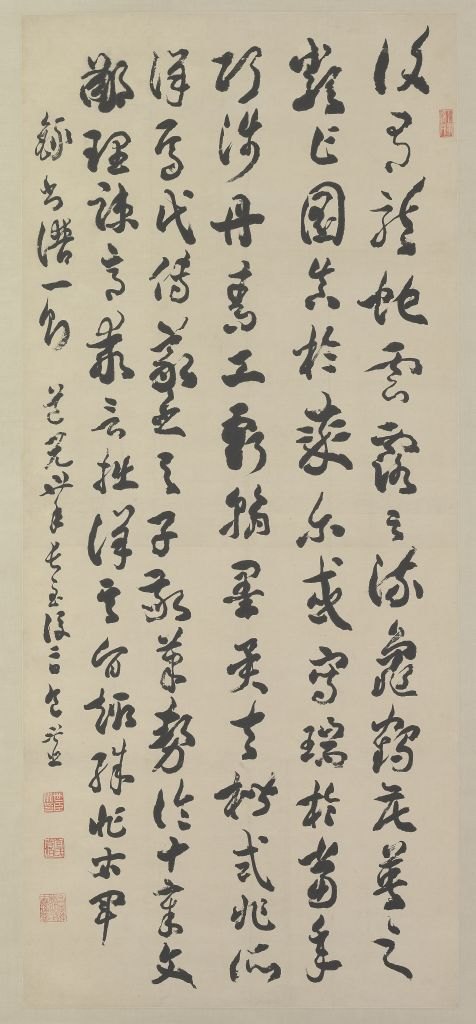 復有龍蛇雲露之流龜鶴花英之
類乍圖真於率尔或寫瑞於當年
巧涉丹青工虧翰墨異夫楷式非所
詳焉代傳羲之与子敬筆勢論十章文
鄙理疎意乖言拙詳其旨趣殊非右軍
書譜一節 道光年長至後二日